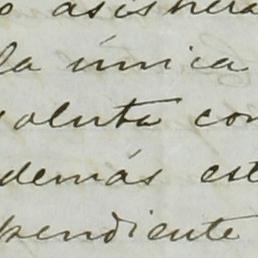 o asistira
la única
soluta con
demás est
pendiente